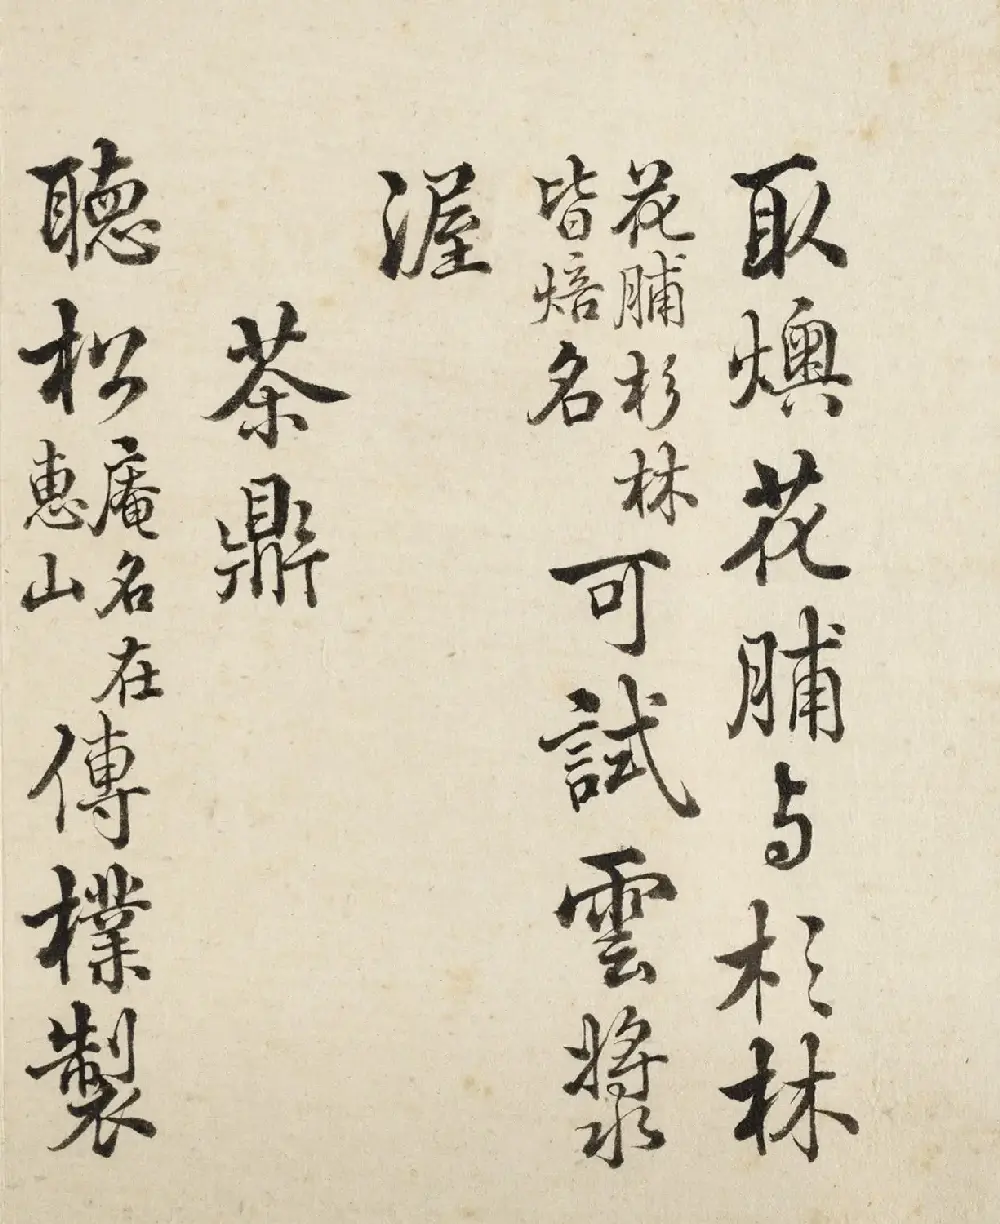 取燠花脯与杉林
花脯杉林皆焙名可試雲漿
渥
茶鼎
聽松庵名在惠山傳樸製